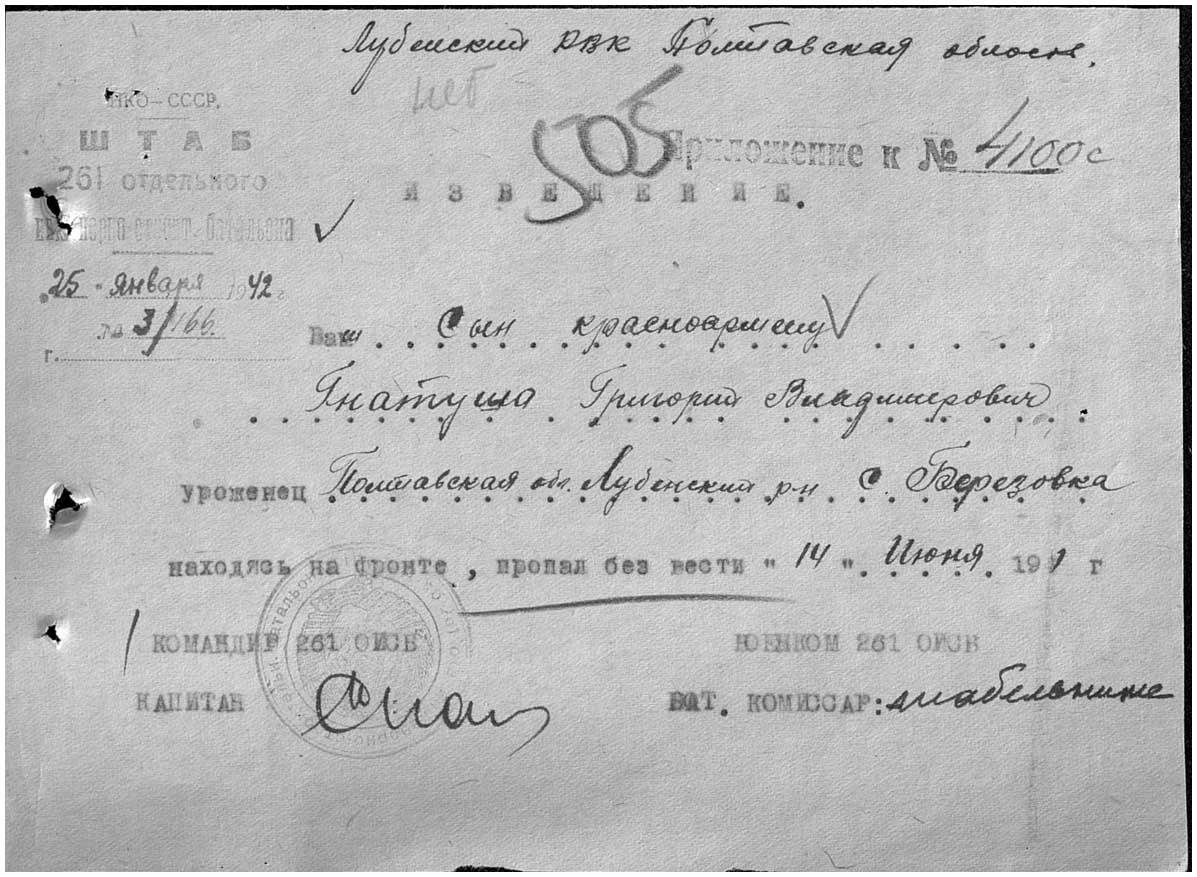 Лубенский РВК Полтавская область.
нет
НКО-СССР.
ШТАБ
505
Приложение к № 4100с
261 отдельного
ИЗВЕЩЕНИЕ.
батальона
"25" января 1942 г
№ 3/166.
г.
Ваш Сын красноармеец
Гнатуша Григорий Владимирович
уроженец Полтавская обл. Лубенский р-н С. Березовка
находясь на фронте, пропал без вести "14". Июня. 1941 г
КОМАНДИР 261 ОИСБ
ВОЕНКОМ 261 ОИСБ
КАПИТАН
БАТ. КОМИССАР: